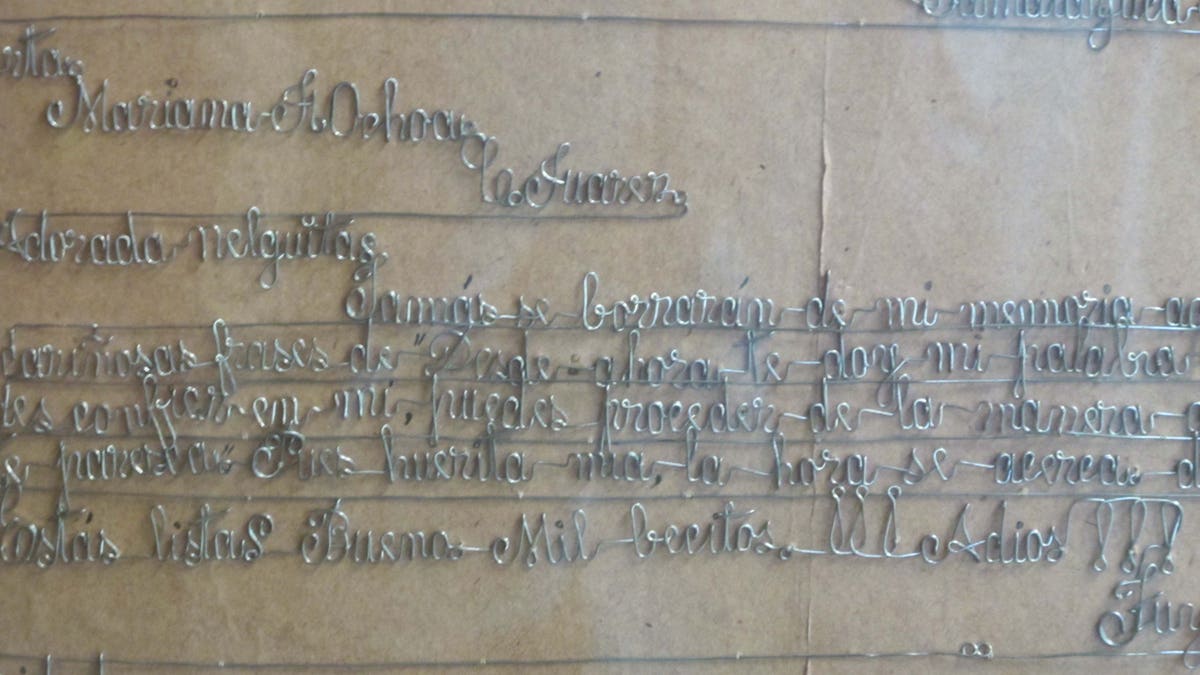 Mariana F. Ochoa
de Juarez.
Adorada nelguitas,
Jamás se borrarán de mi memoria
cariñosas frases de "Desde ahora te doy mi palabra
confier en mi, puedes proceder de la manera
paresca" Pues huerita mia, la hora se acerca.
Estás lista? Bueno Mil becitos. ¡¡¡Adios!!!